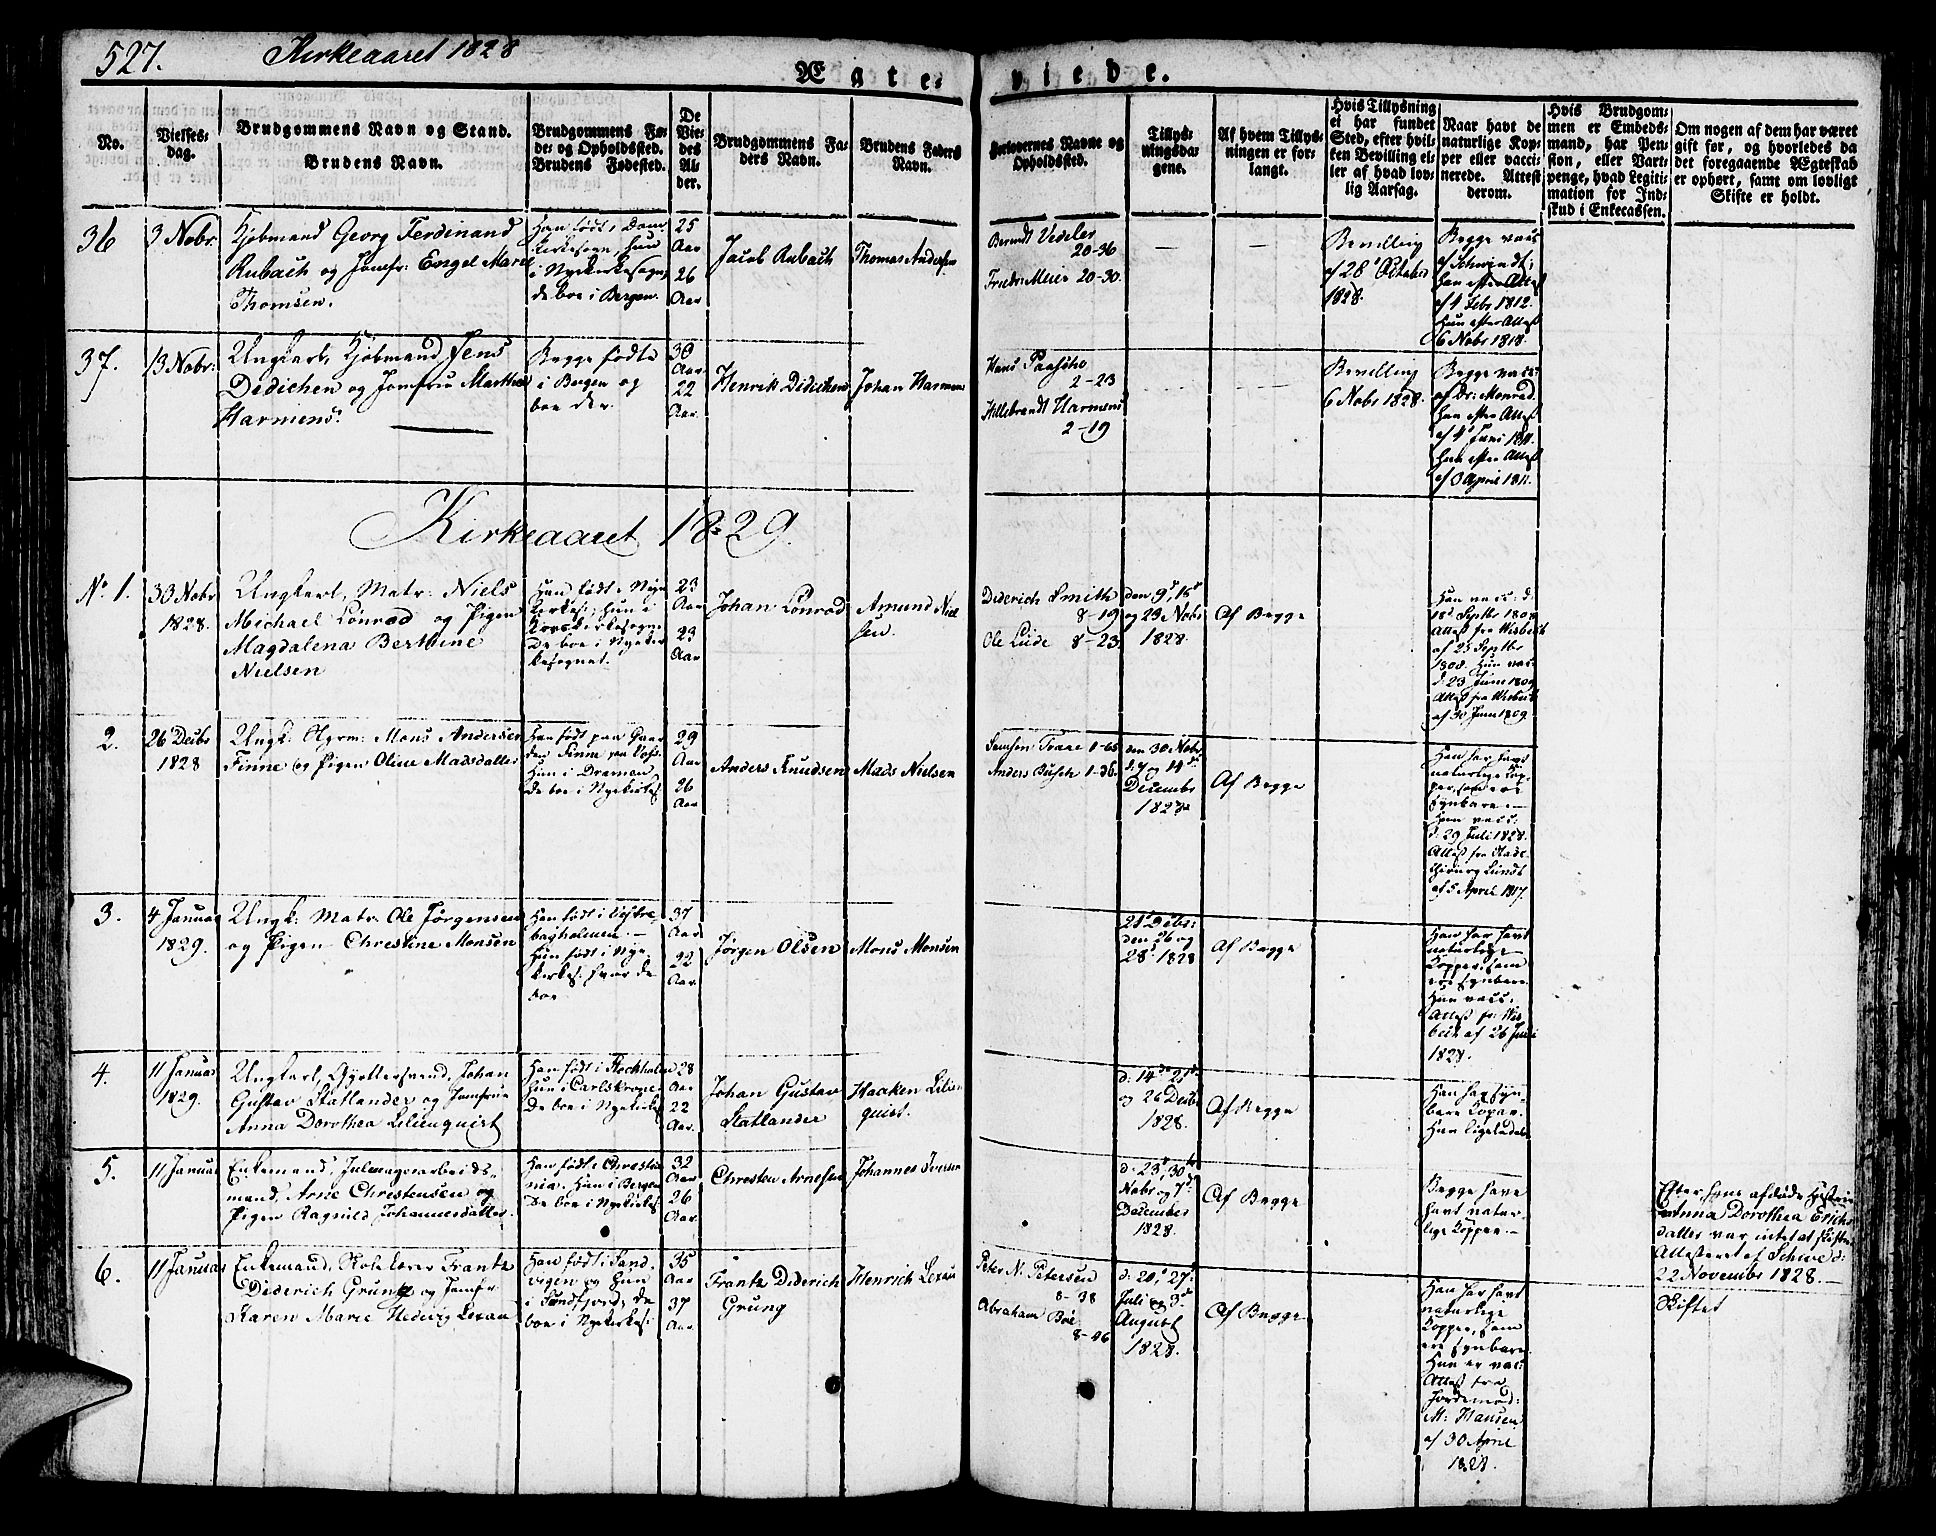 527.
Kirkeaaret 1828
Ægte-
viede.
No.
Vielses-
dag.
Brudgommens Navn og Stand.
Brudens Navn.
Brudgommens Fø-
de- og Opholdssted.
Brudens Fødested.
De
Vie-
des
Al-
der.
Brudgommens Fa-
ders Navn.
Brudens Faders
Navn.
Forlovernes Navne og
Opholdssted.
Tillys-
ningsda-
gene.
Af hvem Tillys-
ningen er for-
langt.
Hvis Tillysning
ei har fundet
Sted, efter hvil-
ken Bevilling el-
ler af hvad lov-
lig Aarsag.
Naar havt de
naturlige Kop-
per eller vacci-
nerede. Attest
derom.
Hvis Brudgom-
men er Embeds-
mand, har Pen-
sion, eller Vart-
penge, hvad Legiti-
mation for Ind-
skud i Enkecassen.
Om nogen af dem har været
gift før, og hvorledes da
det foregaaende Ægteskab
er ophørt, samt om lovligt
Skifte er holdt.
36
3 Nobr
Kjøbmand Georg Ferdinand
Rubach og Jomfr: Engel Marie
Thomsen.
Han født i Dom
kirkesogn, hun
i Nyekirkesogn,
de boe i Bergen.
25
Aar
26
Aar
Jacob Rubach
Thomas Andersen
Berendt Vedeler
20-36
Friedr: Meier 20-30.
— —
— —
Bevilling
af 28 October
1828.
Begge vacc
af Schwindt;
han efter Attest
af 4 Febr 1812.
Hun efter Attest
6 Nobr 1818.
37.
13 Nobr:
Ungkarl, Kjøbmand Jens
Didichen og Jomfru Marthe
Harmens.
Begge fødte
i Bergen og
boe der.
30
Aar
22
Aar
Henrik Didichen
Johan Harmens
Hans Paasche
2-23
Hillebrandt Harmens
2-19
Bevilling
6 Nobr 1828.
Begge vacc:
af Dr: Monrad.
han efter Attest
af 4 Juni 1811.
hun efter Attest
af April 1811.
Kirkeaaret 1829.
No 1.
30 Nobr
1828.
Ungkarl, Matr: Niels
Michael Lönrod og Pigen
Magdalena Berthine
Nielsen
Han født i Nye
Kirkes:, hun i
Korskirkesogn.
De boe i Nyekir
kesognet.
23
Aar
23
Aar
Johan Lönrod
Amund Niel
sen.
Diderich Smith
8-19
Ole Lude 8-23.
den 9, 16
og 23 Nobr
1828.
Af Begge
Han vacc: d:
18 Septbr 1808
Attest fra Wisbech
af 25 Septbr
1808. Hun vacc:
d: 23 Juni 1809
Attest fra Wisbech
af 30 Juni 1809.
2.
26 Decbr
1828
Ungk: Mons Andersen
Finne og Pigen Oline Madsdatter
Han født paa Gaar
den Finne paa Voss.
Hun i Dramen
de boe i Nyekirkes:
29
Aar
26
Aar
Anders Knudsen
Mads Nielsen
Samson Traae 1-65
Anders Busch 1-36.
den 30 Nobr
d: 7 og 14
Decembr
1828
Af Begge
Han har havt
naturlige Kop-
per, som ere
synbare.—
Hun vacc:
d: 29 Juli 1828.
Attest fra
Chirurg Lundt
af 5 April 1817.
3.
4 Januar
1829.
Ungk: Matr Ole Jørgensen
og Pigen Christine Monsen
Han født i
Hun født i Nye-
kirkes: hvor de
boe
37
Aar
22
Aar
Jørgen Olsen
Mons Monsen
21 Decbr:
den 26 og
28. 1828
Af Begge
Han har havt
naturlige
Kopper, som
ere synbare.
Hun vacc:
Attest fr: Wis-
bech af 26 Juni
1828.
4.
11 Januar
1829.
Ungkarl, Johan
Gustav Statlander og Jomfrue
Anna Dorothea Lilienquist
Han født i Stockholm
hun i Carlskrone.
De boe i Nyekirkes
28
Aar
22
Aar.
Johan Gustav
Statlander
Haaken Lilien
quist.
d: 14 21
og 26 Decbr
1828.
Af Begge
Han har syn-
bare Kopar.
Hun ligeledes
5.
11 Januar
Enkemand,
mand, Arne Christensen og
Pigen Ragnild Johannesdatter.
Han født i Christia
nia. Hun i Bergen
De boe i Nyekirkes
32
Aar
26
Aar.
Christen Arnesen
Johannes Iversen
d: 23, 30
Nobr og 7
December
1828.
Af Begge
Begge have
havt natur-
lige Kopper.—
Efter hans afdøde Hustrue
Anna Dorothea Erichs
datter var intet at skifte.
Attesteret af Schwe d:
22 Novembr 1828.—
6.
11 Januar
Enkemand, Skolelærer Frantz
Diderich Grung og Jomfr
Karen Marie Hedwig Lexau
Han født i Sand-
vigen og hun
i Søndfjord, de
boe i Nyekirkes:
35
Aar
37
Aar
Frantz Diderich
Grung
Henrich Lexau
Peter N. Petersen
8-38
Abraham Böe
8-46
d: 20, 27
Juli og 3
August
1828.
Af Begge
Han har havt
naturlige
Kopper, som
ere synbare.
Hun er vac:
Attest fra
Jordemod:
M: Hansen
af 30 April
1828.
Skiftet